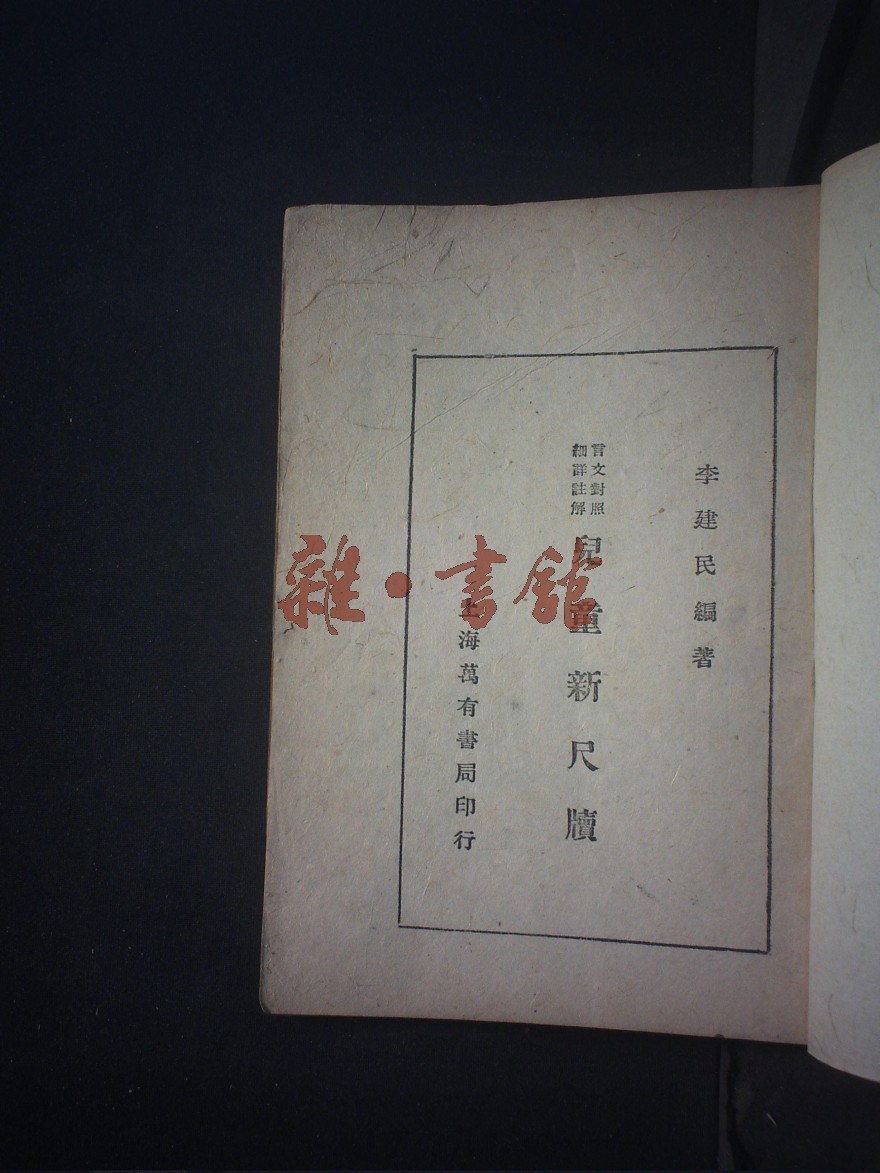 李建民編著
言文對照
細詳註解
兒童新尺牘
上海萬有書局印行
雜·書館